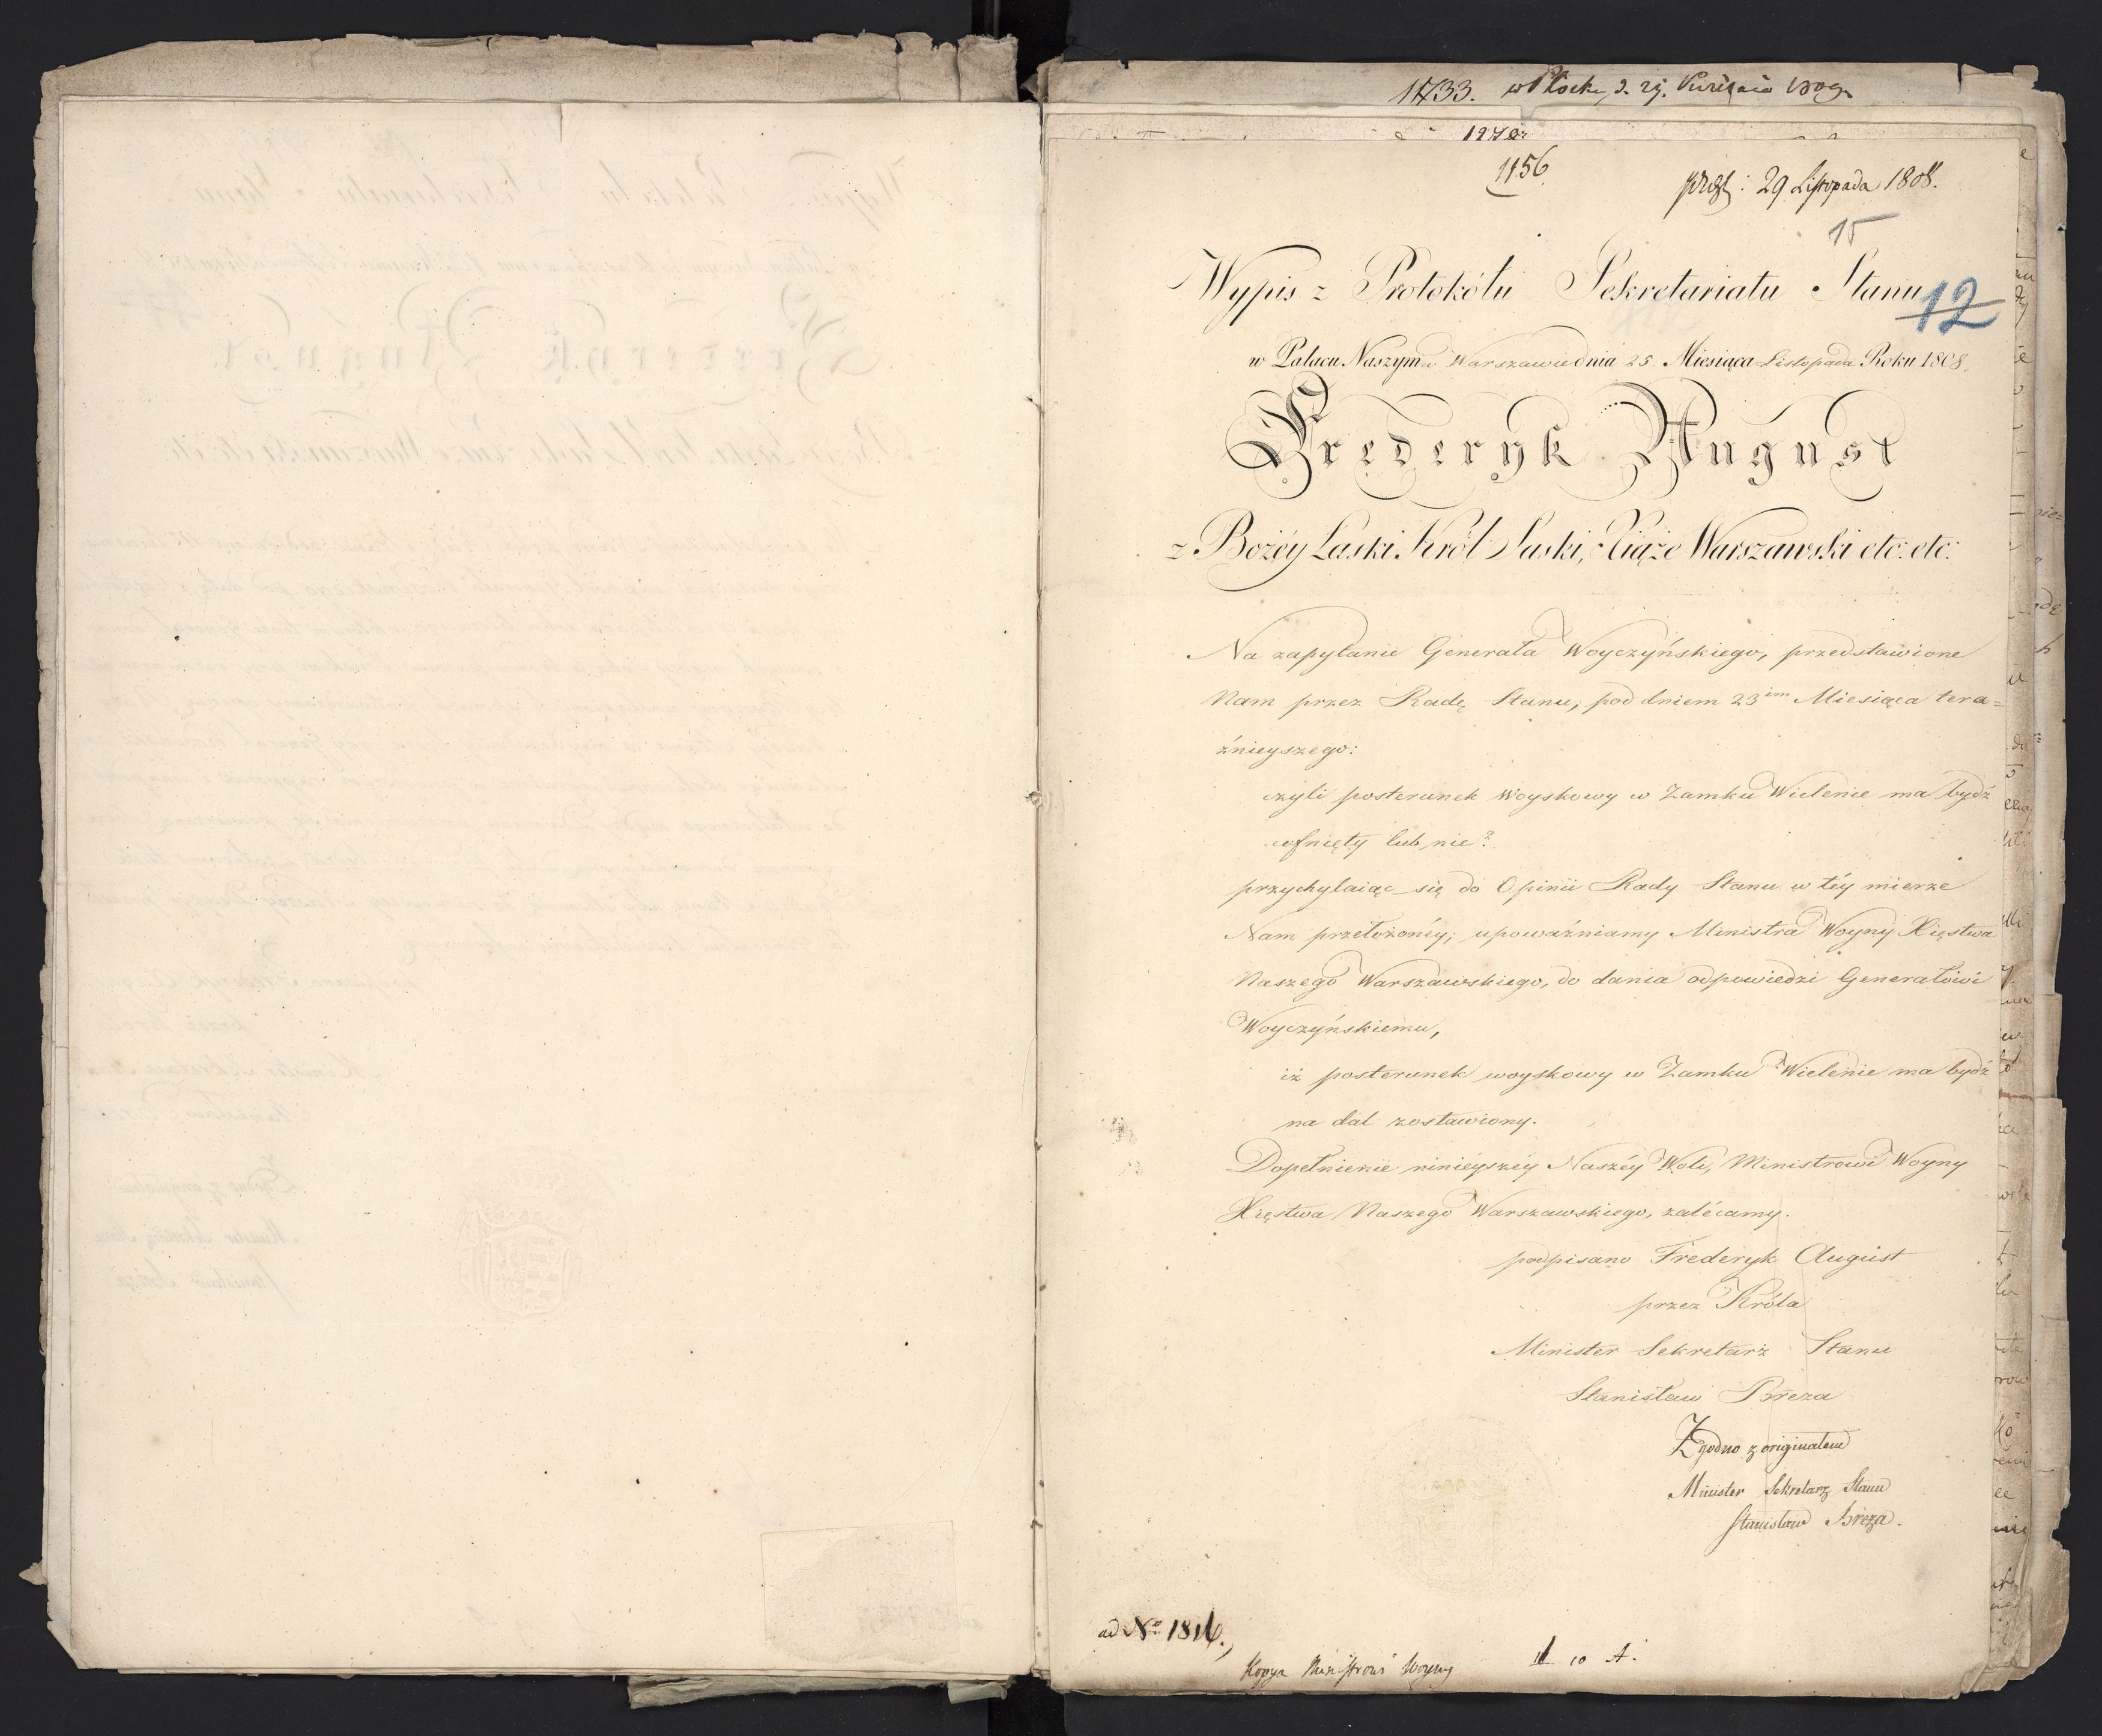 1733. w Płocku, d. 29. Września 1809
1270.
1156.
prest: 29 Listopada 1808.
15
Wypis z Protokółu Sekretariatu Stanu
12
w Pałacu Naszym w Warszawie dnia 25. Miesiąca Listopada Roku 1808.
Frederyk August
z Bożéy Łaski Król Saski, Xiąże Warszawski etc: etc:
Na zapytanie Generała Woyczyńskiego, przedstawione
Nam przez Radę Stanu, pod dniem 23im Miesiąca tera=
źnieyszego:
czyli posterunek Woyskowy w Zamku Wielenie ma bydź
cofnięty lub nie?
przychylaiąc się do Opinii Rady Stanu w téy mierze
Nam przełożonéy; upoważniamy Ministra Woyny Xięstwa
Naszego Warszawskiego, do dania odpowiedzi Generałowi
Woyczyńskiemu,
iż posterunek woyskowy w Zamku Wielenie ma bydź
na dal zostawiony.
Dopełnienie ninieyszéy Naszéy Woli, Ministrowi Woyny
Xięstwa Naszego Warszawskiego, zalécamy.
podpisano Frederyk August
przez Króla
Minister Sekretarz Stanu
Stanisław Breza
Zgodno z originałem
Minister Sekretarz Stanu
Stanisław Breza.
ad No 1816.,
Kopya Ministrowi Woyny